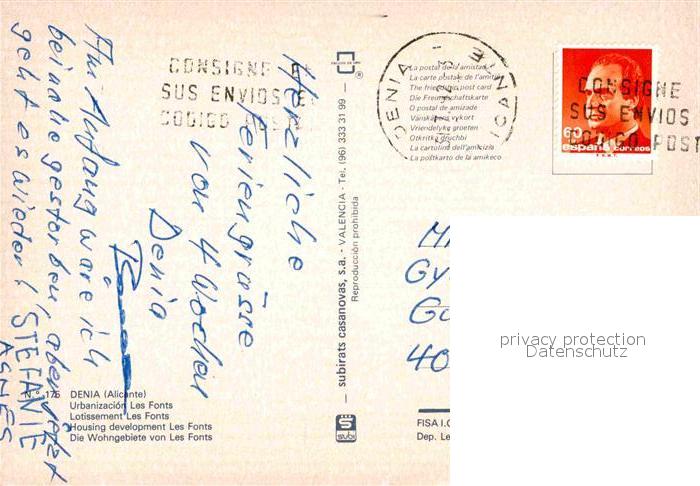 Herzliche
Feriengrüsse
von 4 Wochen
Denia
Am Anfang wäre ich
beinahe gestorben, aber jetzt
geht es wieder!
STEFANIE
AGNES
CONSIGNE
SUS ENVIOS E
CODIGO POS
DENIA
La postal de la amistad
La carte postale de l'amitié
The friendship post card
Die Freundschaftskarte
O postal de amizade
Vänskapens vykort
Vriendelyke groeten
Otkritka druchbi
La cartulina dell'amicizia
La poŝtkarto de la amikeco
CONSIGNE
SUS ENVIOS
CODIGO POST
60
españa correos
F.N.M.T.
subirats casanovas, s.a. - VALENCIA - Tel. (96) 333 31 99
Reproducción prohibida
®
subi
Gy
40
privacy protection
Datenschutz
N.º 175 DENIA (Alicante)
Urbanización Les Fonts
Lotissement Les Fonts
Housing development Les Fonts
Die Wohngebiete von Les Fonts
FISA I.G
Dep. Le